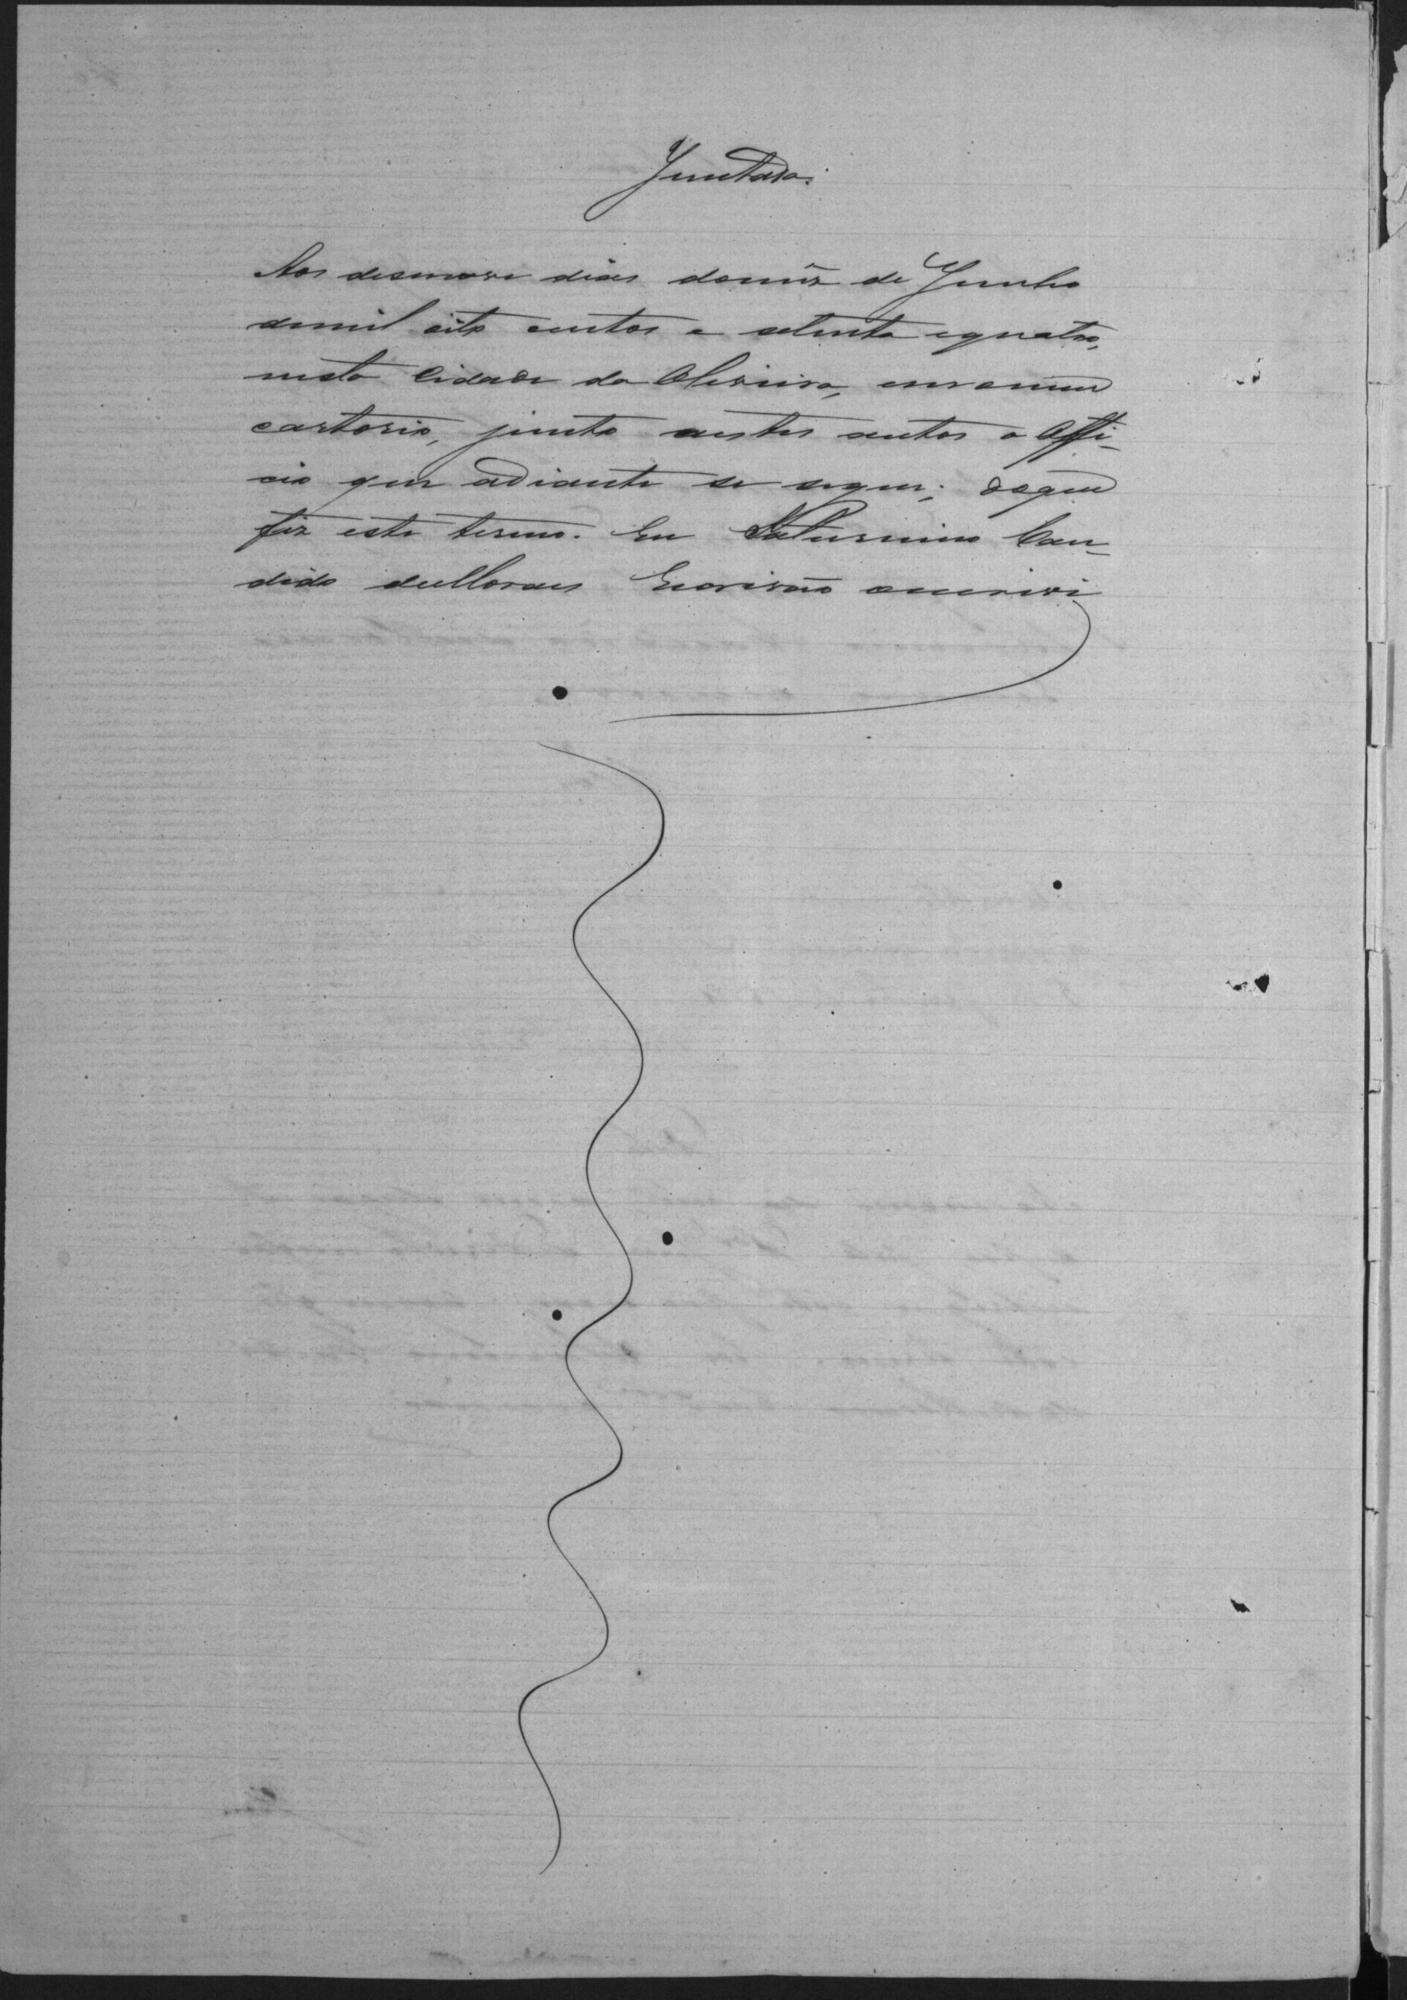 Juntada.
Aos desenove dias domez de Junho
demil oito centos e setenta equatro,
nesta Cidade da Oliveira, em omeu
cartorio, junto aestes autos o Offi-
cio que adiante se segue; doque
fiz este termo. Eu Saturnino Can-
dido deMoraes Escrivão oescrivi